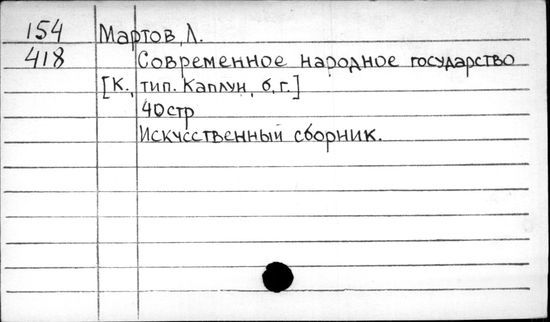 154 Мартов, Л.
418 Современное народное государство
[К., тип. Каплун, б,г.]
40стр
Искусственный сборник.